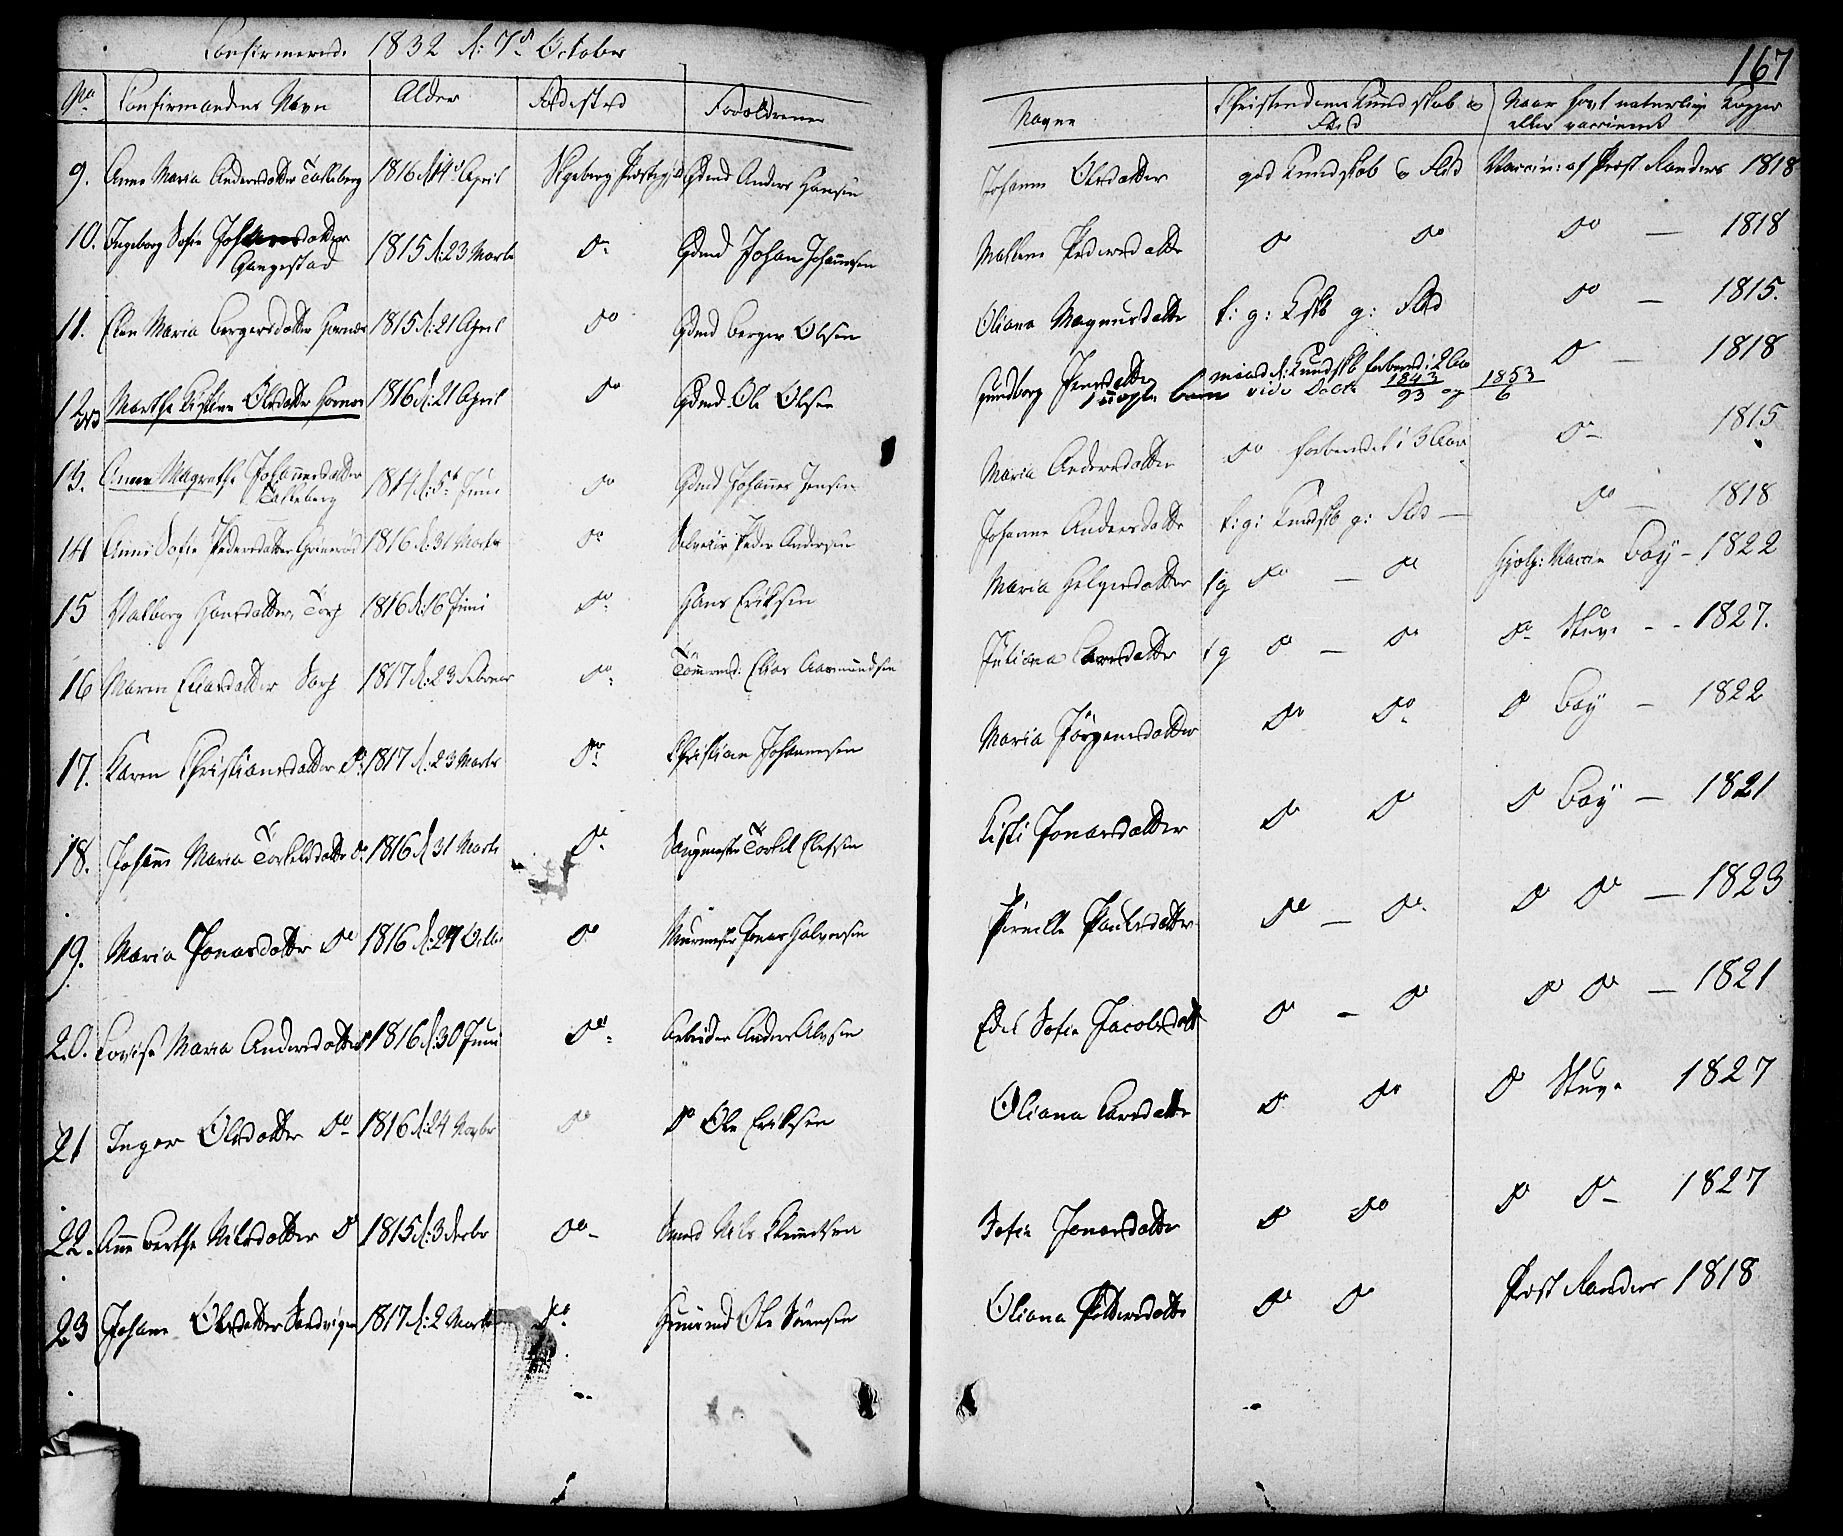 Confirmerede 1832 d: 7d October
167
No Confirmandens Navn Alder Födested Forældrenes Navne Christendoms Kundskab og Flid Naar havt naturlige Kopper eller vaccineret
9. Anne Maria Andersdatter Talleberg 1816 d: 14d April Skjeberg Præstegjd Gdmd Anders Hansen Johanne Olsdatter god Kundskab og Flid Vaccin: af Prost Randers 1818
10. Ingeborg Sofie Johansdatter Gangestad 1815 d: 23 Marts Do Gdmd Johan Johannesen Mallene Pedersdatter Do Do Do — 1818
11. Elen Maria Bergersdatter Hornæs 1815 d: 21 April Do Gdmd Berger Olsen Oliana Magnusdatter t: g: Kskb g: Flid Do — 1815.
12. Marthe Kistine Olsdatter Hornæs 1816 d: 21 April Do Gdmd Ole Olsen Gundborg Jensdatter maadel: Kundskb forbered: i 2 Aar Do — 1818
1 uægte barn vide Daab 1843/93 og 1853/6
13. Anne Magrethe Johannesdatter Talleberg 1814 d: 5t Juni Do Gdmd Johannes Jensen Maria Andersdatter Do forberedet i 3 Aar Do — 1815
14 Anne Sofie Pedersdatter Grimerød 1816 d: 31 Marts Do Selveier Peder Andersen Johanne Andersdatter t: g: Kundskb g: Flid — Do — 1818
15 Valborg Hansdatter, Torp 1816 d: 16 Juni Do Hans Eriksen Maria Helgesdatter t g Do — Do Hjelp: Vaccin Boÿ — 1822
16 Maren Eliasdatter Sarp 1817 d: 23 Februar Do Tömmermd: Elias Aasmundsen Juliana Larsdatter t g Do — Do Do Stuve - - 1827.
17. Karen Christiansdatter Do 1817 d: 23 Marts Do Christian Johannesen Maria Jörgensdatter Do Do Do Boÿ — 1822
18. Johanne Maria Torkelsdatter Do 1816 d 31 Marts Do Saugmester Torkel Elefsen Kisti Jonasdatter Do Do Do Boÿ — 1821
19. Maria Jonasdatter Do 1816 d: 24 Octbr Do Murmester Jonas Halvorsen Pernille Paulsdatter Do — Do Do Do — 1823
20. Lovise Maria Andersdatter Do 1816 d: 30 Juni Do Arbeider Anders Alvsen Edel Sofie Jacobsdatt Do — Do Do Do — 1821
21 Inger Olsdatter Do 1816 d: 24 Novbr Do Do Ole Eriksen Oliana Larsdatter Do Do Do Stuve 1827
22. Anne Berthe Nilsdatter Do 1815 d: 3 Decbr Do Smed Nils Knudsen Sofie Jonasdatter Do Do Do Do 1827
23 Johane Olsdatter Sandvigen 1817 d: 2 Marts Do Huusmd Ole Sörensen Oliana Pettersdatter Do Do Prost Randers 1818